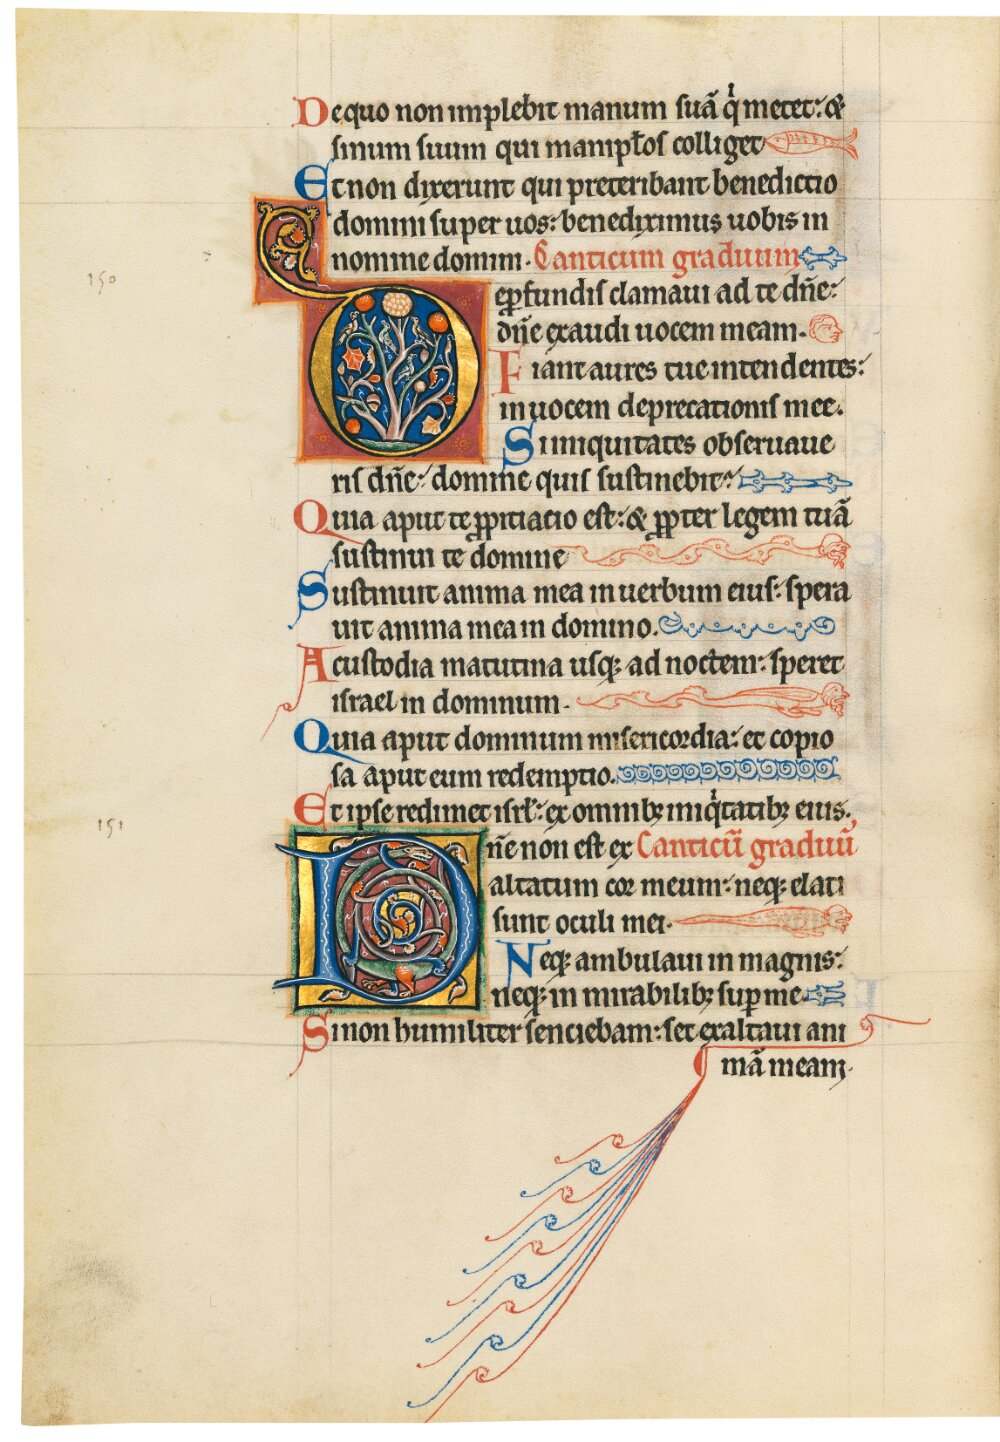 De quo non implebit manum suā q̇ metet: &
sinum suum qui manipłos colliget
Et non dixerunt qui preteribant benedictio
domini super uos: benediximus uobis in
nomine domini. Canticum graduum
150
De ꝓfundis clamaui ad te dn̄e:
dn̄e exaudi uocem meam.
Fiant aures tue intendentes:
in uocem deprecationis mee.
Si iniquitates obseruaue
ris dn̄e: domine quis sustinebit:
Quia aput te ꝓpitiacio est: & ꝓpter legem tuā
sustinui te domine
Sustinuit anima mea in uerbum eius: spera
uit anima mea in domino.
A custodia matutina usqꝫ ad noctem: speret
israel in dominum.
Quia aput dominum misericordia: et copio
sa aput eum redemptio.
Et ipse redimet isrł: ex omnibꝫ iniq̇tatibꝫ eius.
151
Dn̄e non est ex Canticū graduū
altatum cor meum: neqꝫ elati
sunt oculi mei.
Neqꝫ ambulaui in magnis:
neqꝫ in mirabilibꝫ sup me.
Si non humiliter senciebam: set exaltaui ani
mā meam.